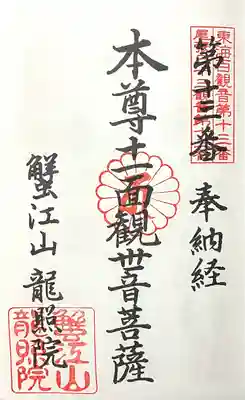 東海百観音第十三番
第十三番
奉納経
本尊十一面観世音菩薩
蟹江山 龍照院
蟹江山
龍照院